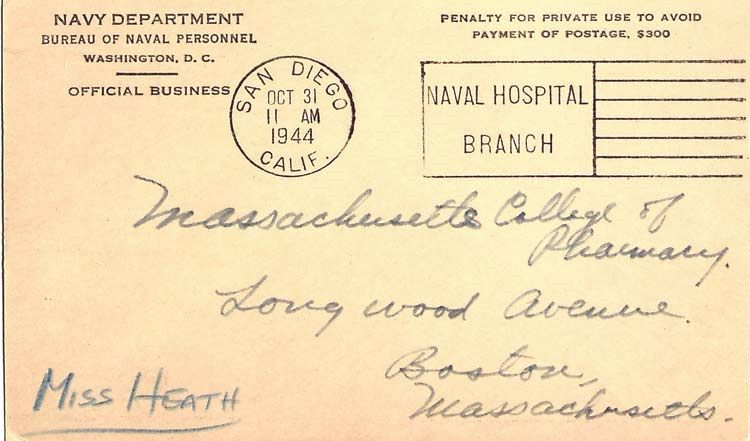 NAVY DEPARTMENT
BUREAU OF NAVAL PERSONNEL
WASHINGTON, D. C.
OFFICIAL BUSINESS
PENALTY FOR PRIVATE USE TO AVOID
PAYMENT OF POSTAGE, $300
SAN DIEGO
OCT 31
11 AM
1944
CALIF.
NAVAL HOSPITAL
BRANCH
Massachusetts College of
Pharmacy.
Longwood Avenue.
Boston,
Massachusetts.
MISS HEATH